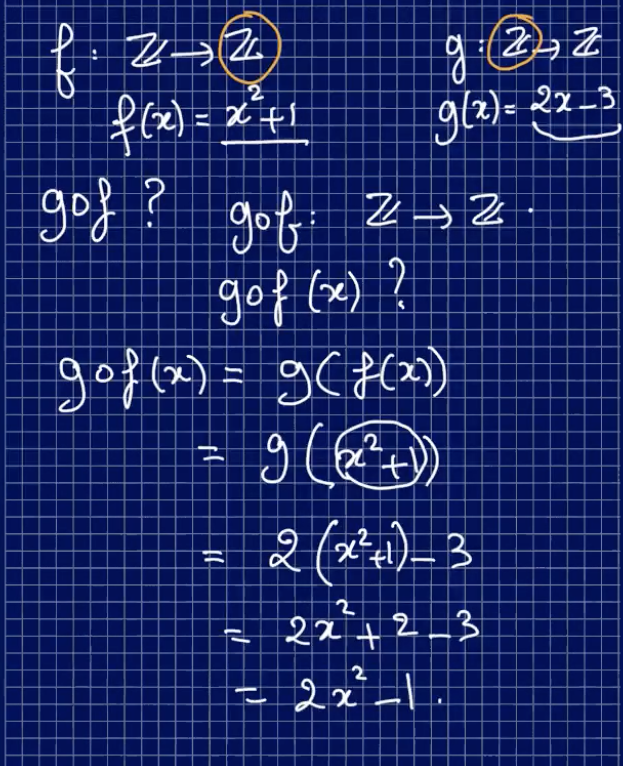 f : ℤ → ℤ g : ℤ → ℤ
f(x) = x² + 1 g(x) = 2x – 3
gof ? gof : ℤ → ℤ .
gof (x) ?
gof (x) = g( f(x))
= g ( x² + 1))
= 2 (x² + 1) – 3
= 2x² + 2 – 3
= 2x² – 1 .